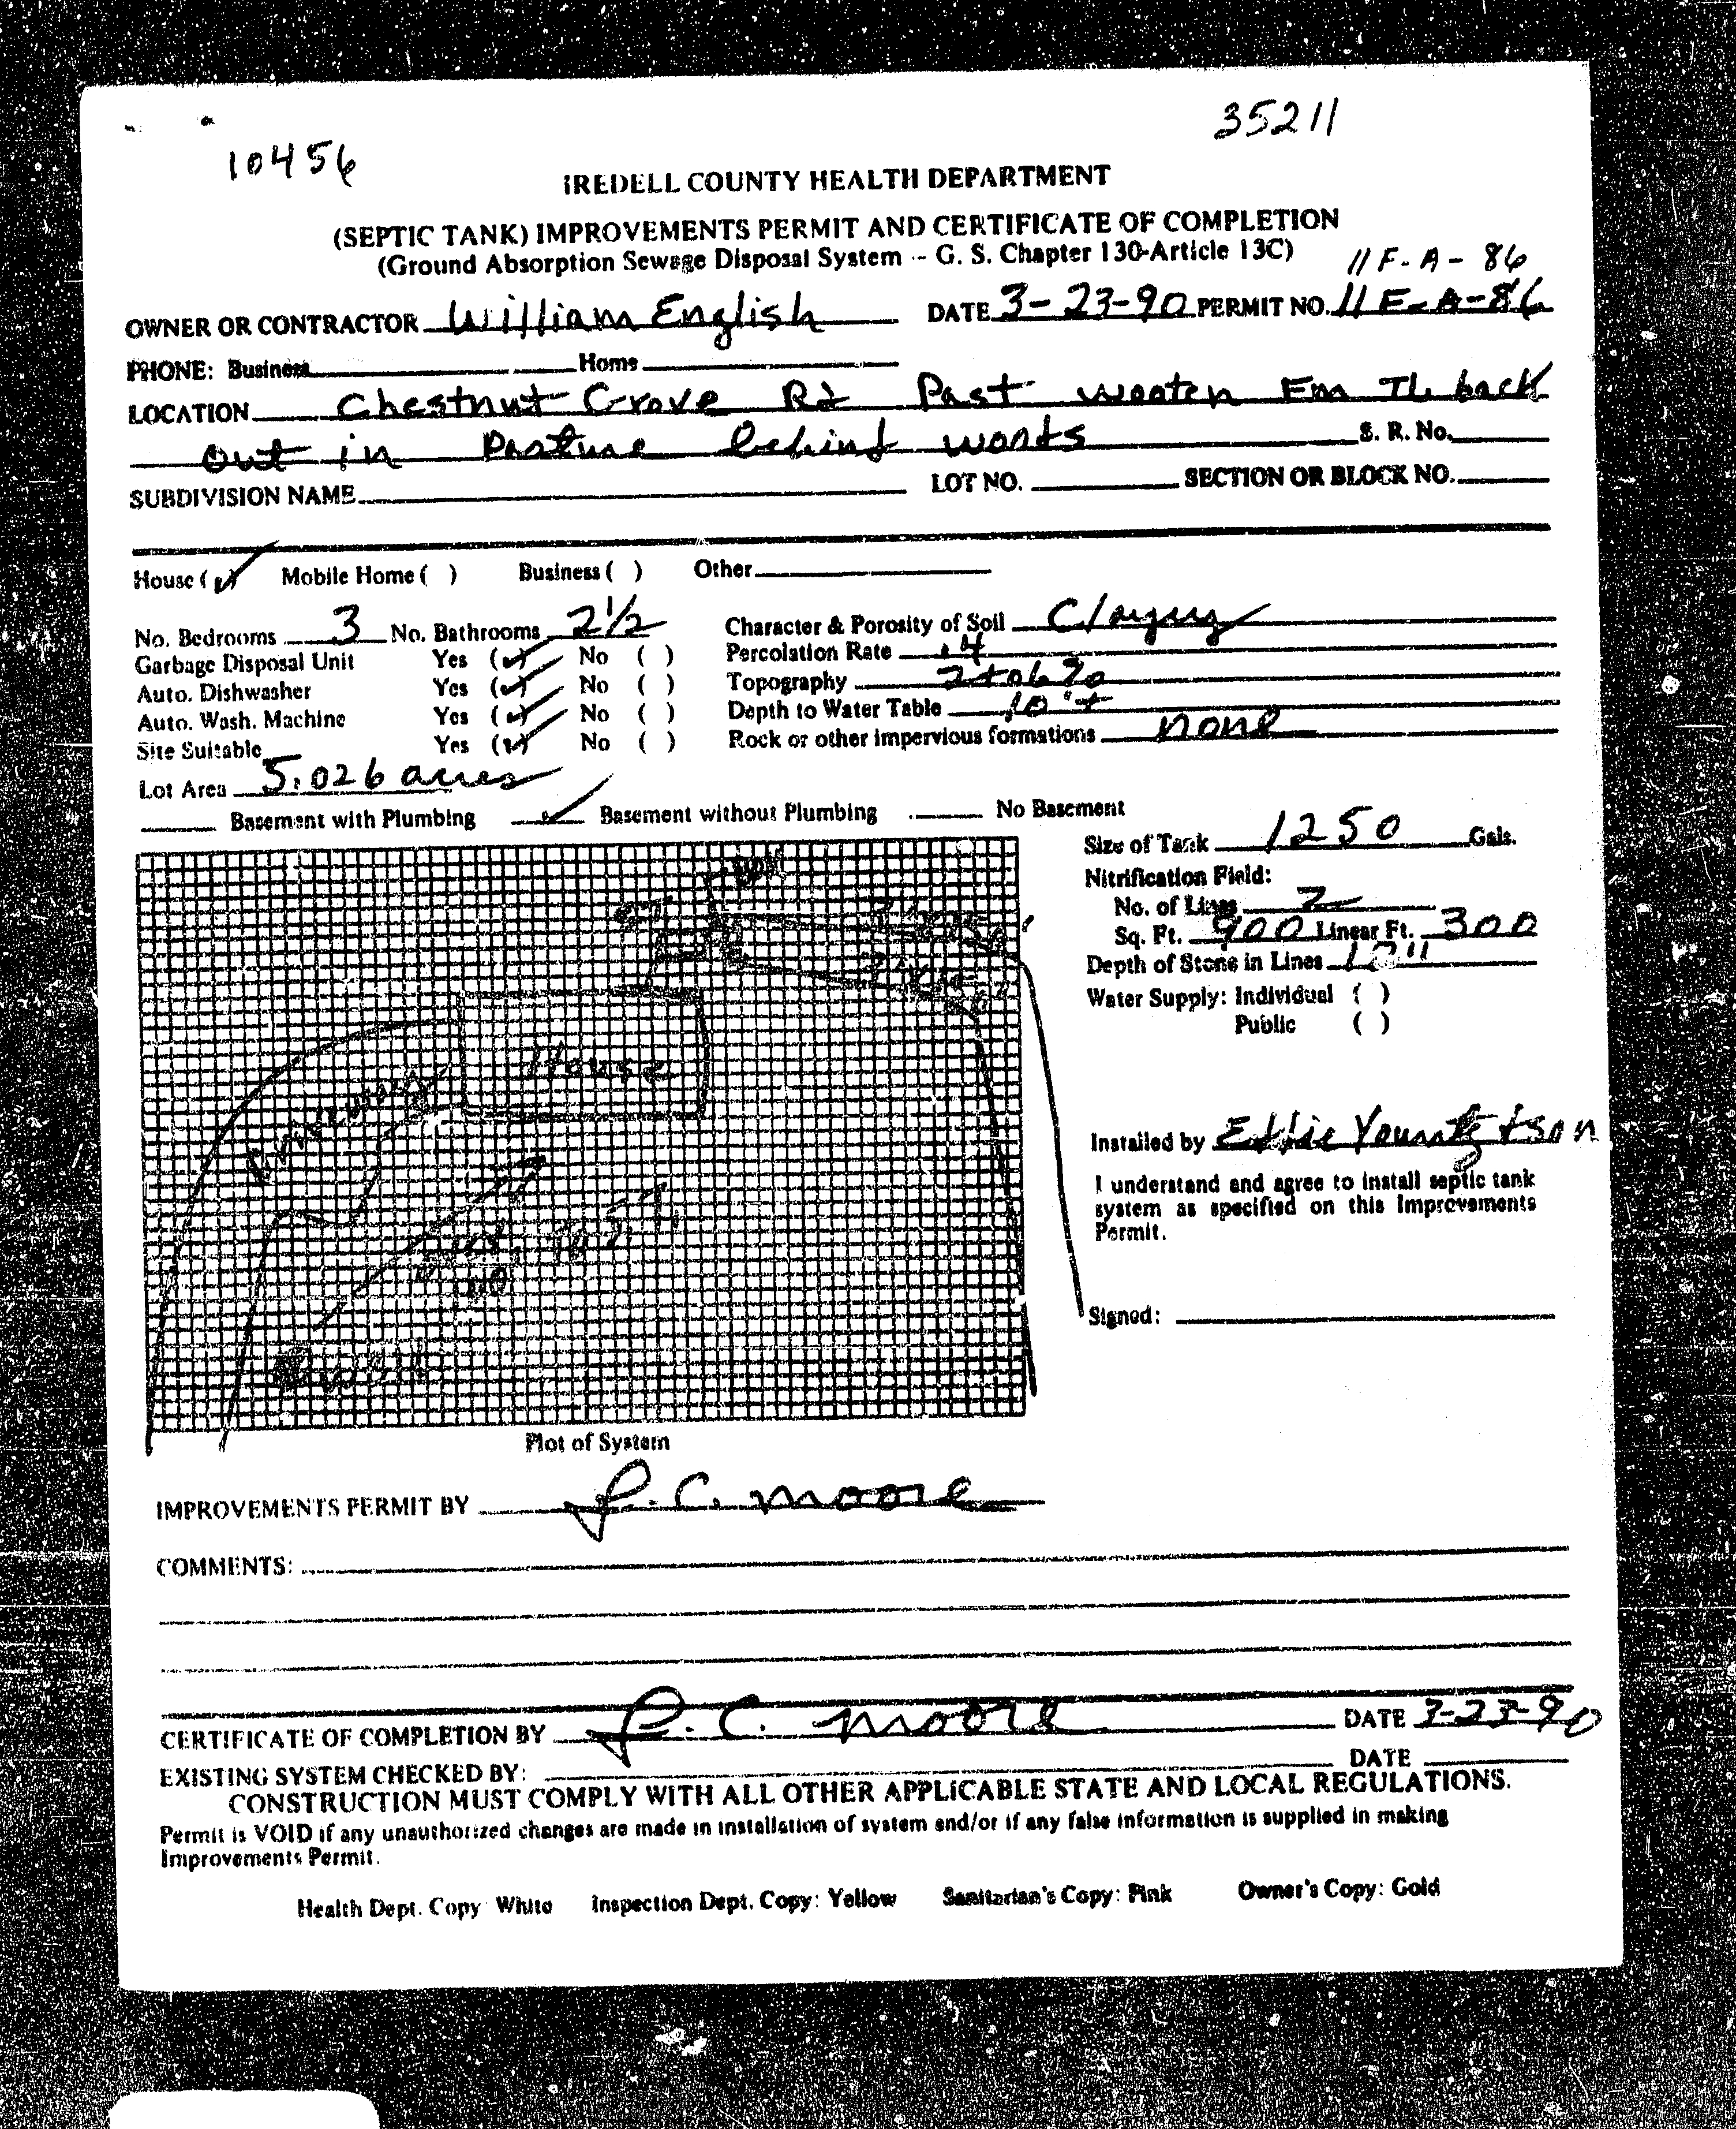 35211
10456
IREDELL COUNTY HEALTH DEPARTMENT
(SEPTIC TANK) IMPROVEMENTS PERMIT AND CERTIFICATE OF COMPLETION
(Ground Absorption Sewage Disposal System -- G. S. Chapter 130-Article 13C)
11 F-A-86
OWNER OR CONTRACTOR William English DATE 3-23-90 PERMIT NO. 11 E-A-86
PHONE: Business Home
LOCATION Chestnut Grove Rd Past Wooten Fm TL back
out in Pasture behind woods S. R. No.
SUBDIVISION NAME LOT NO. SECTION OR BLOCK NO.
House (✓) Mobile Home ( ) Business ( ) Other
No. Bedrooms 3 No. Bathrooms 2 1/2 Character & Porosity of Soil Clayey
Garbage Disposal Unit Yes (✓) No ( ) Percolation Rate .4
Auto. Dishwasher Yes (✓) No ( ) Topography 2 to 6 %
Auto. Wash. Machine Yes (✓) No ( ) Depth to Water Table 10 ' +
Site Suitable Yes (✓) No ( ) Rock or other impervious formations none
Lot Area 5.026 acres
Basement with Plumbing ✓ Basement without Plumbing No Basement
Size of Tank 1250 Gals.
Nitrification Field:
No. of Lines 2
Sq. Ft. 900 Linear Ft. 300
Depth of Stone in Lines 12"
Water Supply: Individual ( )
Public ( )
House
Driveway
well
Installed by Eddie Yountz & son
I understand and agree to install septic tank
system as specified on this Improvements
Permit.
Signed:
Plot of System
IMPROVEMENTS PERMIT BY J. C. Moore
COMMENTS:
CERTIFICATE OF COMPLETION BY J. C. Moore DATE 3-23-90
EXISTING SYSTEM CHECKED BY: DATE
CONSTRUCTION MUST COMPLY WITH ALL OTHER APPLICABLE STATE AND LOCAL REGULATIONS.
Permit is VOID if any unauthorized changes are made in installation of system and/or if any false information is supplied in making
Improvements Permit.
Health Dept. Copy: White Inspection Dept. Copy: Yellow Sanitarian's Copy: Pink Owner's Copy: Gold